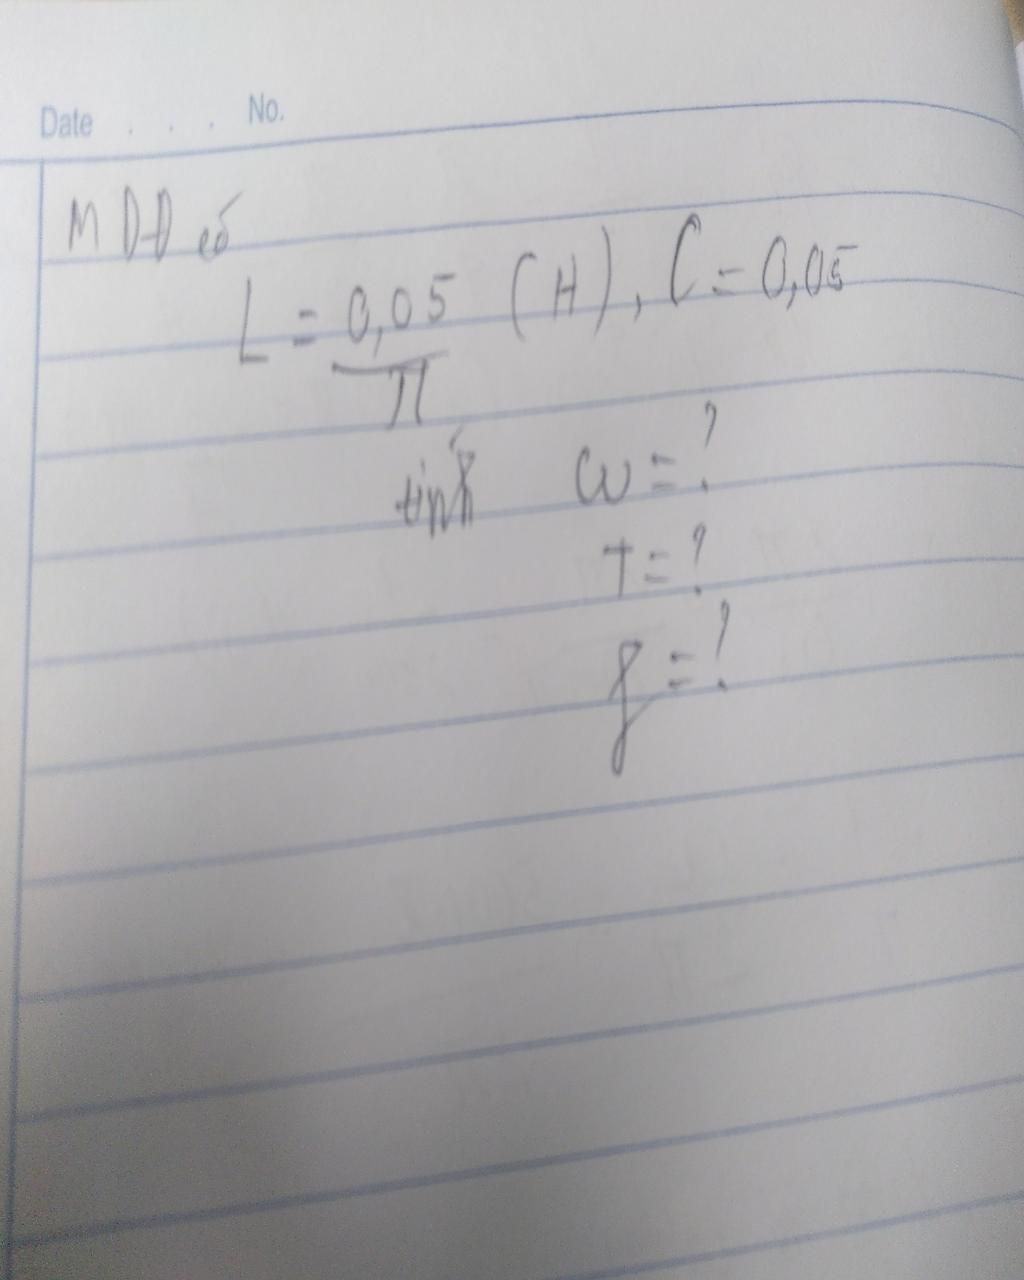 Date . . . No.
MDĐ có
L = 0,05/π (H), C = 0,05
tính ω = ?
T = ?
f = ?